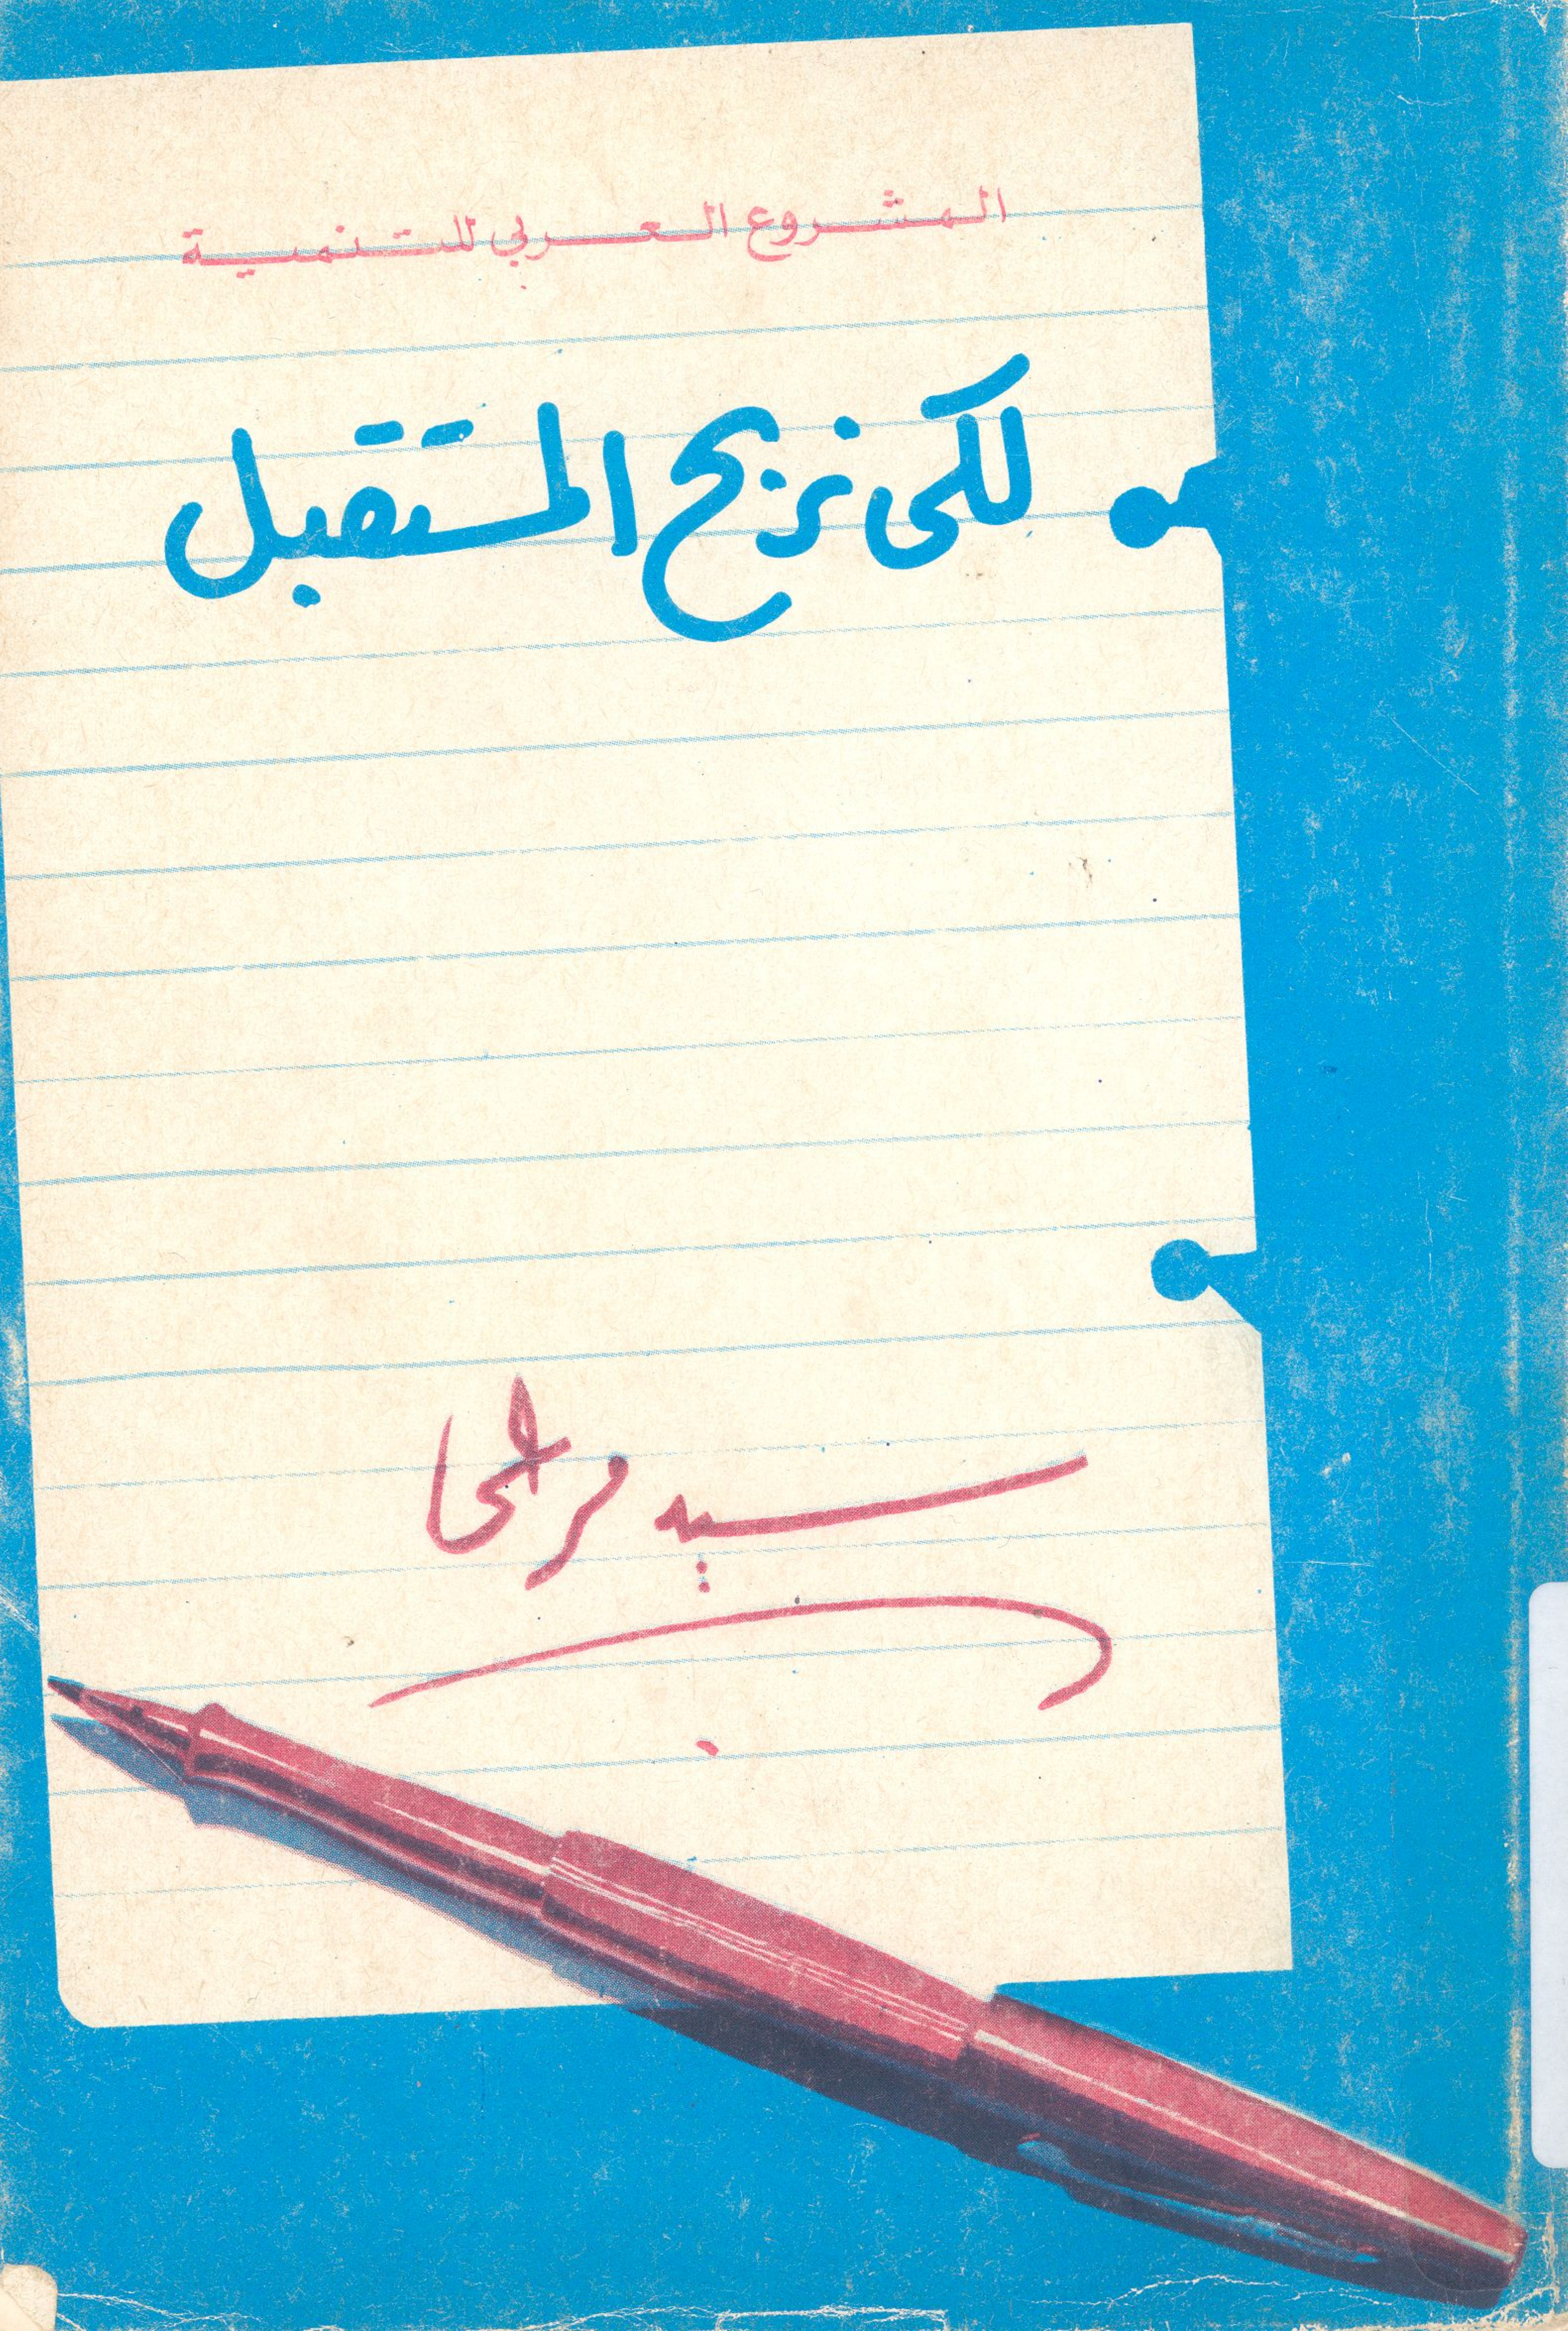 المشروع العربي للتنمية
لكى نربح المستقبل
سيد مرعى